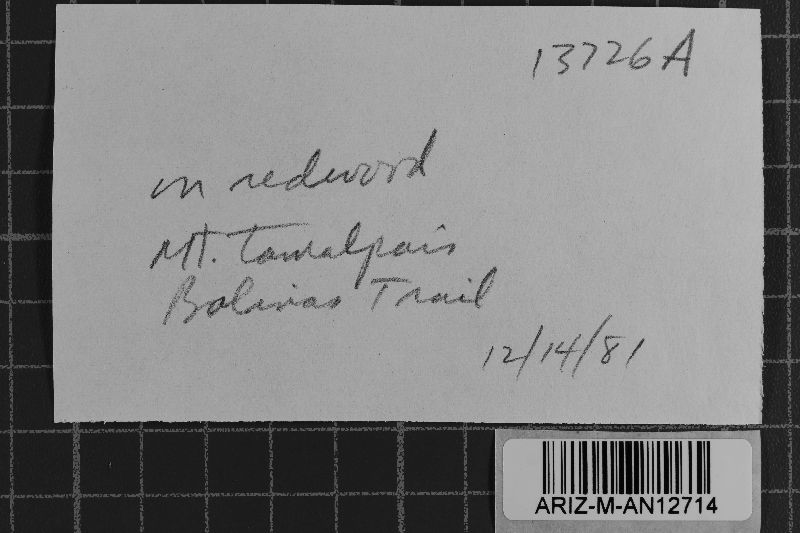 13726A
on redwood
Mt. Tamalpais
Bolinas Trail
12/14/81
ARIZ-M-AN12714